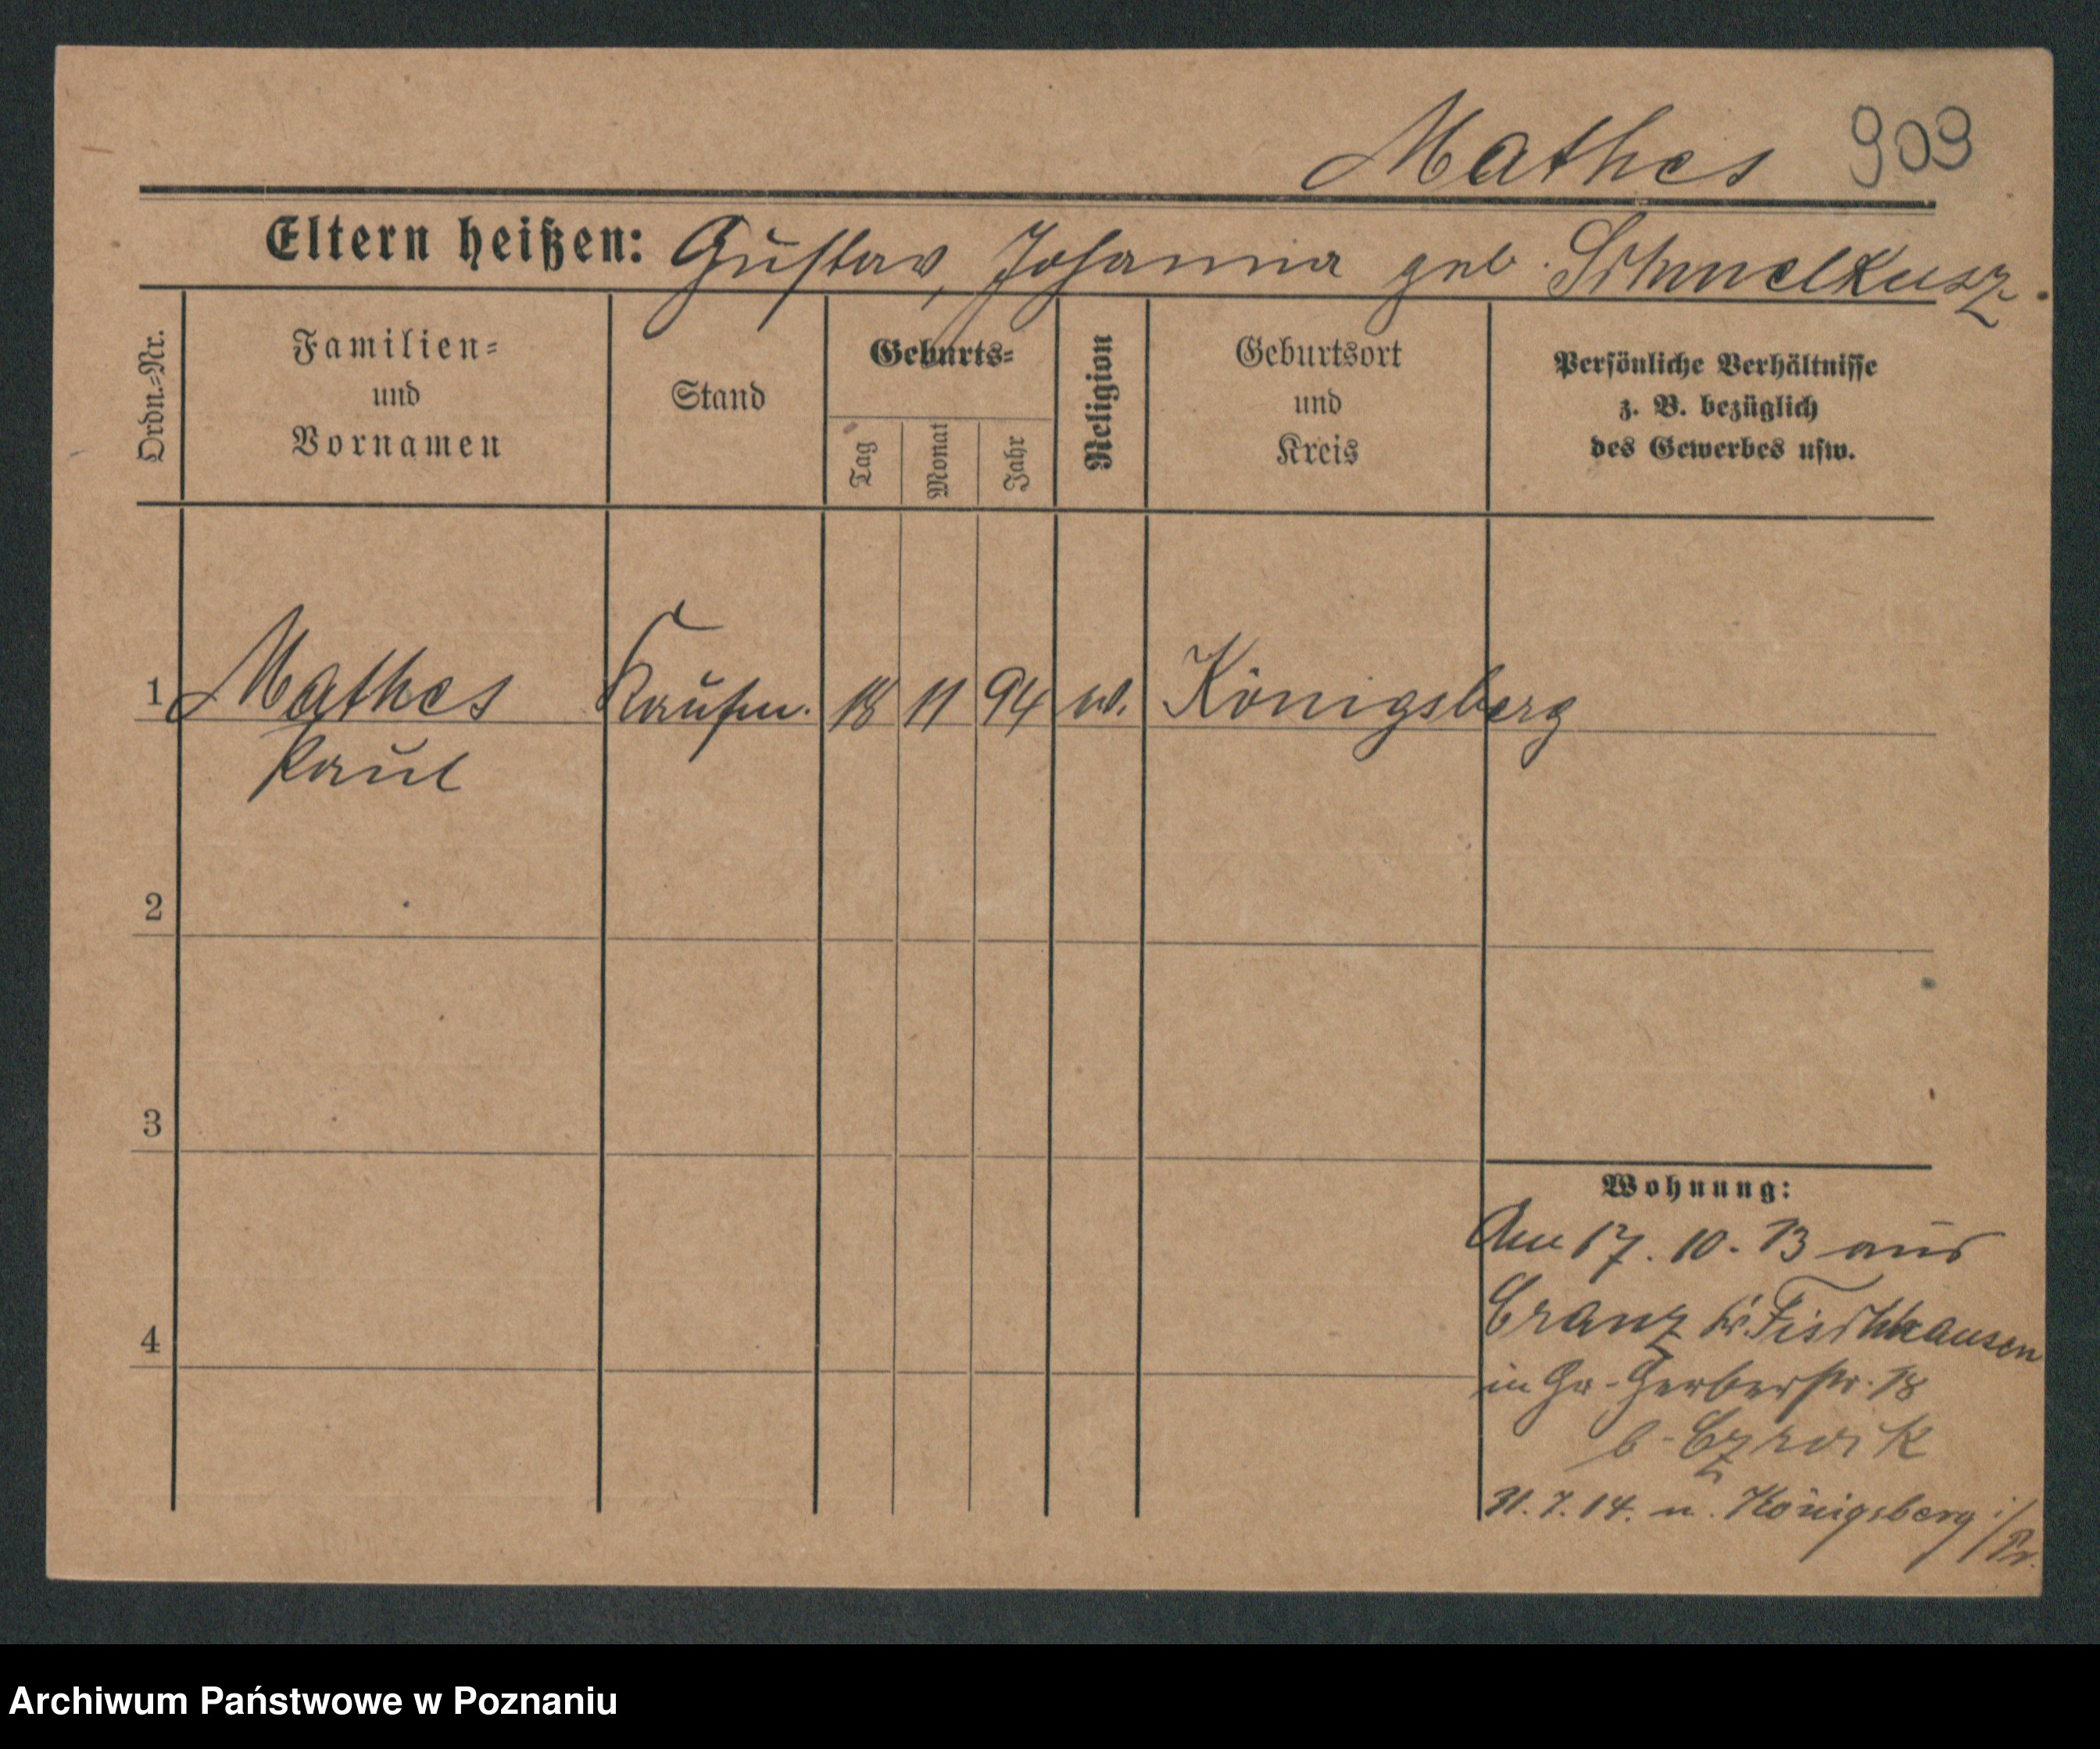 Mathes 909
Eltern heißen: Gustav, Johanna geb. Schmelkusz.
Ordn.=Nr.
Familien=
und
Vornamen
Stand
Geburts=
Tag
Monat
Jahr
Religion
Geburtsort
und
Kreis
Persönliche Verhältnisse
z. B. bezüglich
des Gewerbes usw.
1 Mathes Kaufm. 18 11 94 Königsberg
Paul
2
3
4
Wohnung:
Am 17. 10. 13 aus
Cranz Kr. Fischhausen
in Gr. Gerberstr. 18
b.
31. 7. 14. n. Königsberg i/Pr.
Archiwum Państwowe w Poznaniu